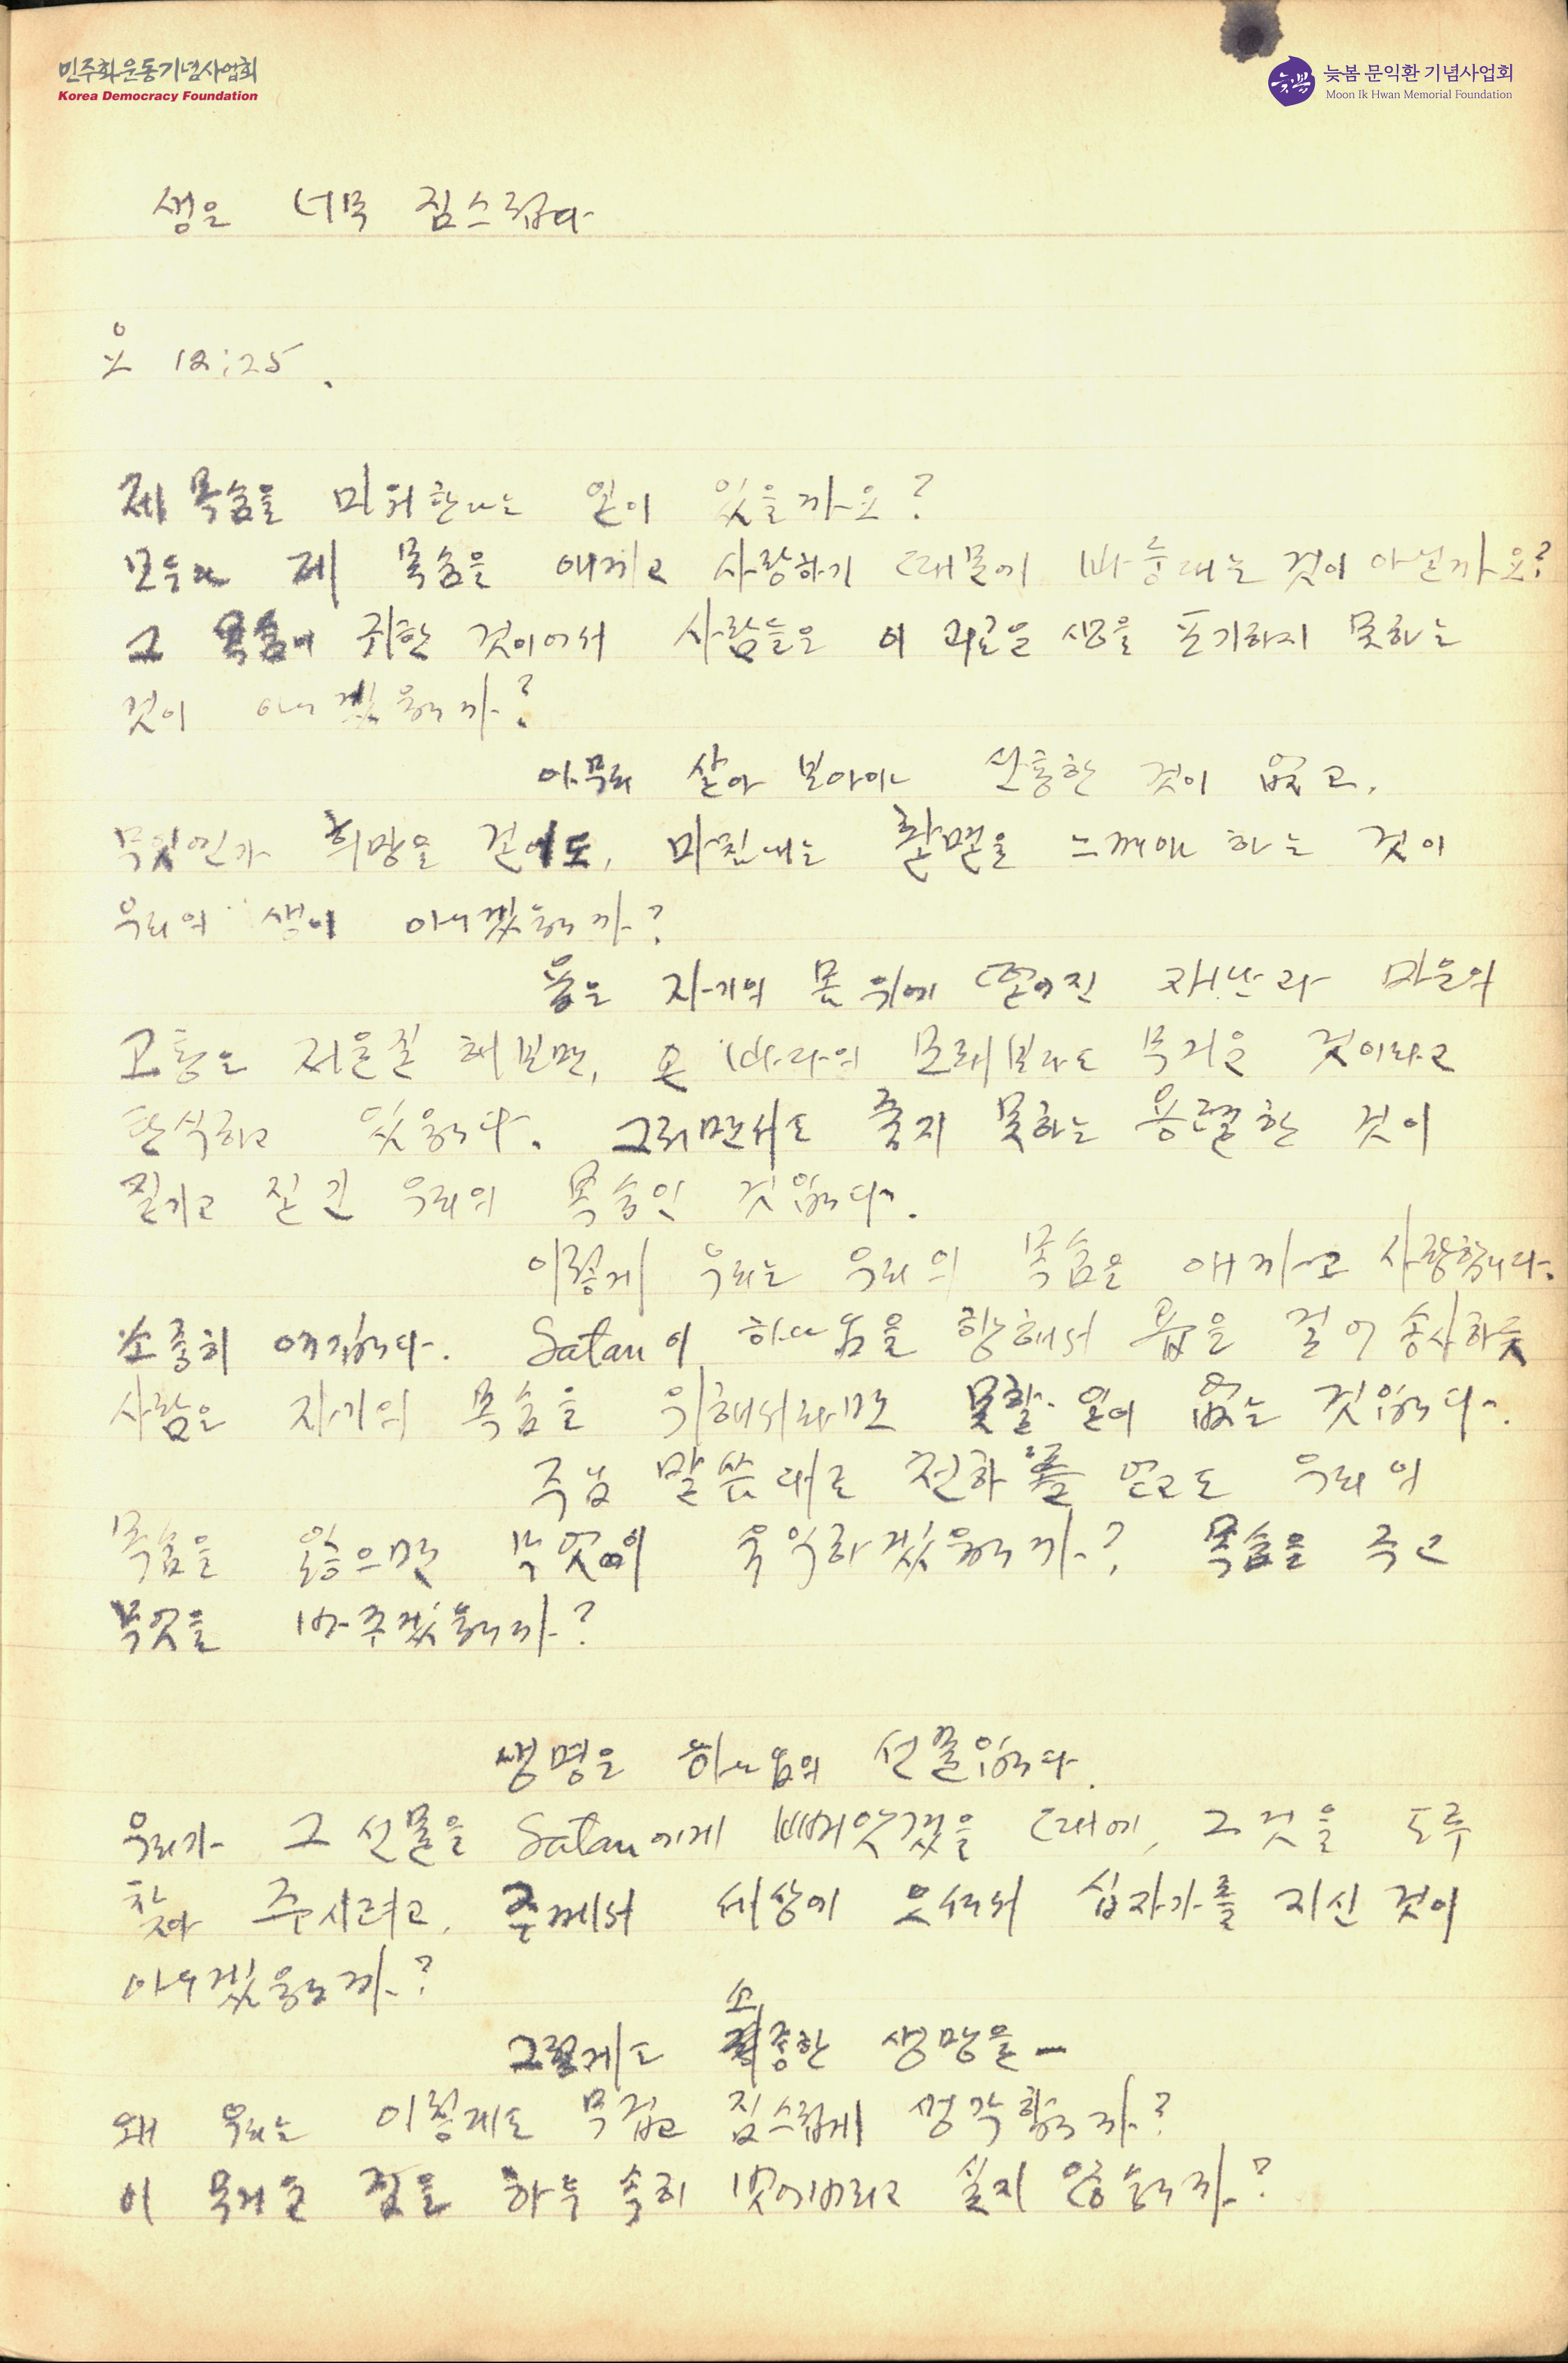 민주화운동기념사업회
Korea Democracy Foundation
늦봄
늦봄 문익환 기념사업회
Moon Ik Hwan Memorial Foundation
생은 너무 짐스럽다
요 12:25.
제 목숨을 미워한다는 일이 있을까요?
모두가 제 목숨을 애끼고 사랑하기 때문에 바둥대는 것이 아닐까요?
그 목숨이 귀한 것이어서 사람들은 이 괴로운 생을 포기하지 못하는
것이 아니겠읍니까?
아무리 살아 보아야 신통한 것이 없고,
무엇인가 희망을 걸어도, 마침내는 환멸을 느껴야 하는 것이
우리의 생이 아니겠읍니까?
욥은 자기의 몸 위에 떨어진 재난과 마음의
고통을 저울질 해보면, 온 바다의 모래보다도 무거운 것이라고
탄식하고 있읍니다. 그러면서도 죽지 못하는 용렬한 것이
질기고 질긴 우리의 목숨인 것입니다.
이렇게 우리는 우리의 목숨을 애끼고 사랑합니다.
소중히 여깁니다. Satan이 하나님을 향해서 욥을 걸어 송사하듯
사람은 자기의 목숨을 위해서라면 못할 일이 없는 것입니다.
주님 말씀대로 천하를 얻고도 우리의
목숨을 잃으면 무엇이 유익하겠읍니까? 목숨을 주고
무엇을 바꾸겠읍니까?
생명은 하나님의 선물입니다.
우리가 그 선물을 Satan에게 빼앗겼을 때에, 그것을 도루
찾아 주시려고, 주께서 세상에 오셔서 십자가를 지신 것이
아니겠읍니까?
그렇게도 소중한 생명을 –
왜 우리는 이렇게도 무겁고 짐스럽게 생각합니까?
이 무거운 짐을 하루 속히 벗어버리고 싶지 않습니까?